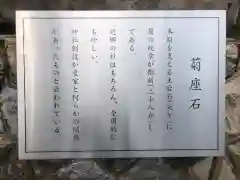 菊座石
本殿を支える土台石(六ケ)に
菊の紋章が彫刻(二十八弁)し
てある。
近郷の社はもちろん、全国的に
も珍しい。
神社創設が皇家と何らかの関係
があったものと云われている。